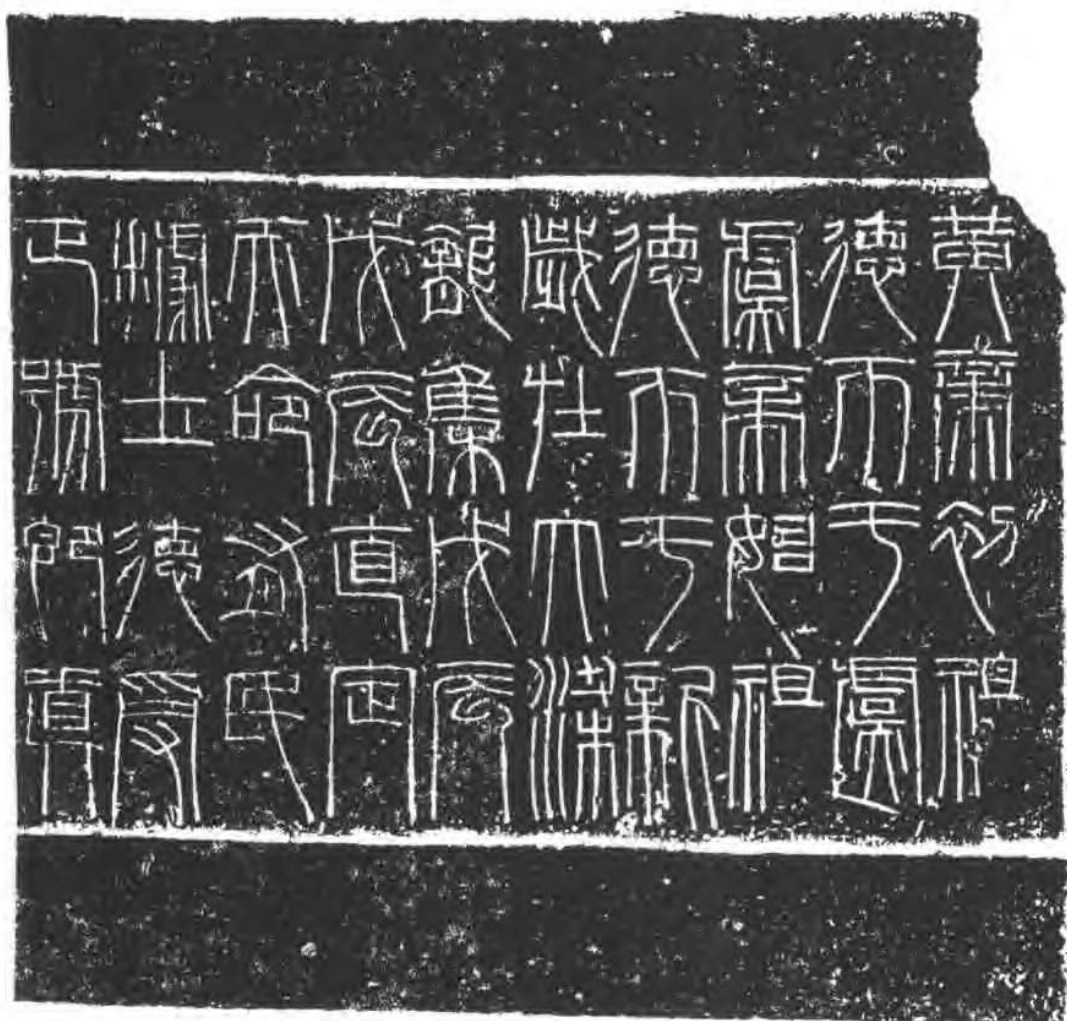 黃帝初祖
德帀于虞
虞帝始祖
德帀于新
歲在大梁
龍集戊辰
戊辰直定
天命有民
據土德受
正號即真